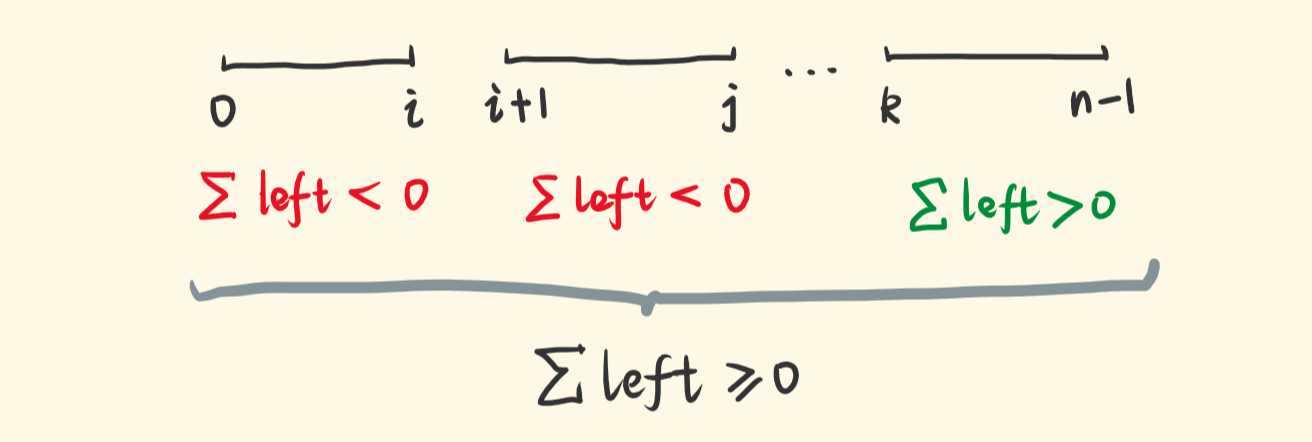 0 i i+1 j ... k n-1
∑ left < 0 ∑ left < 0 ∑ left > 0
∑ left ⩾ 0